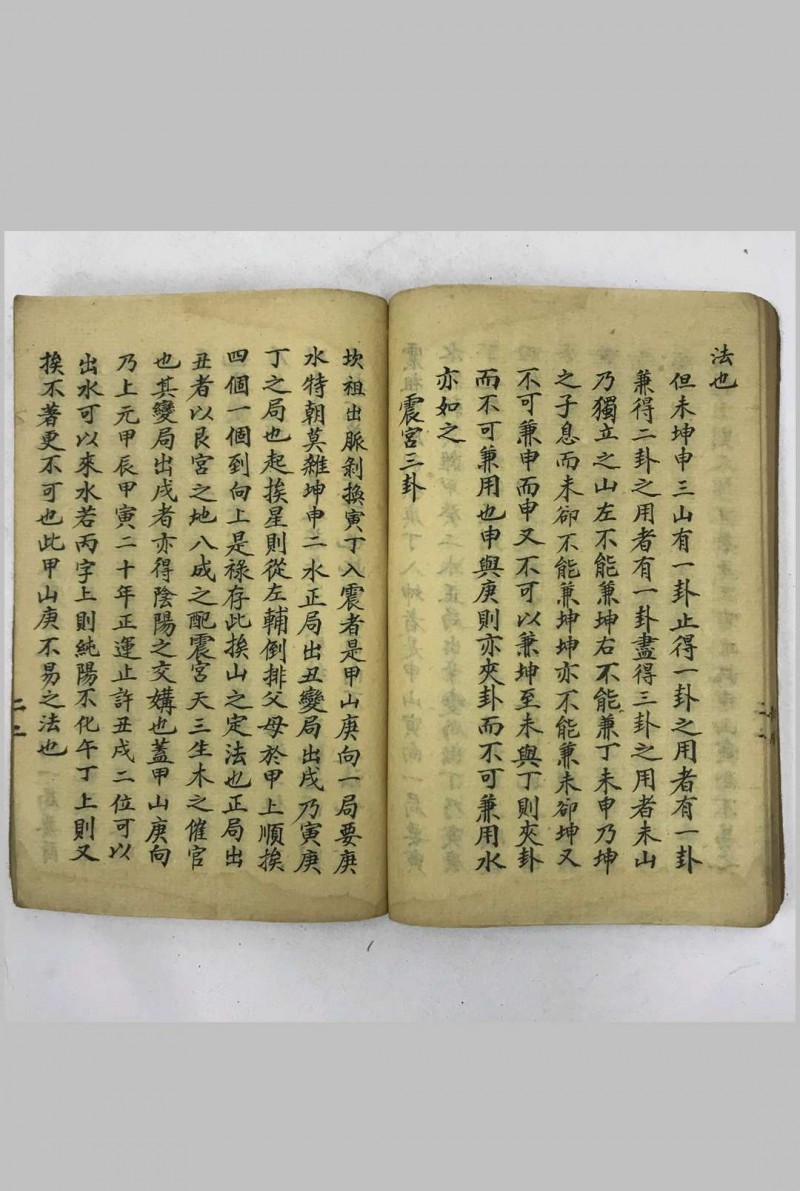 法也
但未坤申三山有一卦止得一卦之用者有一卦
兼得二卦之用者有一卦盡得三卦之用者未山
乃獨立之山左不能兼坤右不能兼丁未申乃坤
之子息而未卻不能兼坤坤亦不能兼未卻坤又
不可兼申而申又不可以兼坤至未與丁則夾卦
而不可兼用也申與庚則亦夾卦而不可兼用水
亦如之
震宮三卦
坎祖出脈剝換寅丁入震者是甲山庚向一局要庚
水特朝莫雜坤申二水正局出丑變局出戌乃寅庚
丁之局也起挨星則從左輔倒排父母於甲上順挨
四個一個到向上是祿存此挨山之定法也正局出
丑者以艮宮之地八成之配震宮天三生木之催官
也其變局出戌者亦得陰陽之交媾也蓋甲山庚向
乃上元甲辰甲寅二十年正運止許丑戌二位可以
出水可以來水若丙字上則純陽不化午丁上則又
挨不著更不可也此甲山庚不易之法也